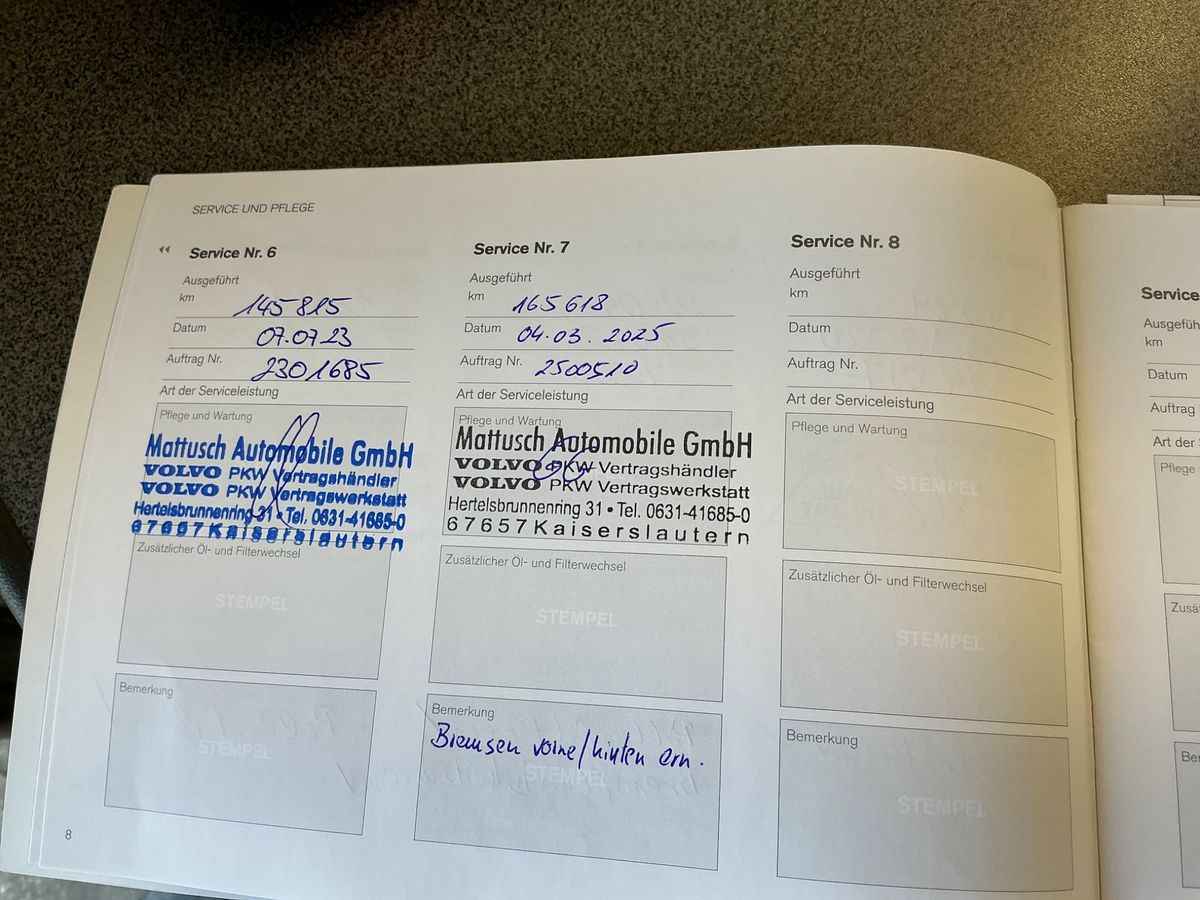 SERVICE UND PFLEGE
Service Nr. 6
Ausgeführt
km 145 815
Datum 07.07.23
Auftrag Nr. 2301685
Art der Serviceleistung
Pflege und Wartung
Mattusch Automobile GmbH
VOLVO PKW Vertragshändler
VOLVO PKW Vertragswerkstatt
Hertelsbrunnenring 31 • Tel. 0631-41685-0
67657 Kaiserslautern
Zusätzlicher Öl- und Filterwechsel
STEMPEL
Bemerkung
STEMPEL
8
Service Nr. 7
Ausgeführt
km 165 618
Datum 04.03.2025
Auftrag Nr. 2500510
Art der Serviceleistung
Pflege und Wartung
Mattusch Automobile GmbH
VOLVO PKW Vertragshändler
VOLVO PKW Vertragswerkstatt
Hertelsbrunnenring 31 • Tel. 0631-41685-0
67657 Kaiserslautern
Zusätzlicher Öl- und Filterwechsel
STEMPEL
Bemerkung
Bremsen vorne/hinten ern.
STEMPEL
Service Nr. 8
Ausgeführt
km
Datum
Auftrag Nr.
Art der Serviceleistung
Pflege und Wartung
STEMPEL
Zusätzlicher Öl- und Filterwechsel
STEMPEL
Bemerkung
STEMPEL
Service
Ausgefüh
km
Datum
Auftrag
Art der
Pflege
Zusä
Be